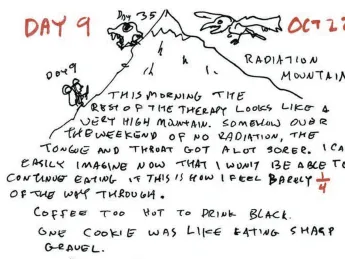 DAY 9
DAY 35
OCT 22
RADIATION
MOUNTAIN
DAY 9
THIS MORNING THE
REST OF THE THERAPY LOOKS LIKE A
VERY HIGH MOUNTAIN. SOMEHOW OVER
THE WEEKEND OF NO RADIATION, THE
TONGUE AND THROAT GOT A LOT SORER. I CA
EASILY IMAGINE NOW THAT I WON'T BE ABLE TO
CONTINUE EATING IF THIS IS HOW I FEEL BARELY 1/4
OF THE WAY THROUGH.
COFFEE TOO HOT TO DRINK BLACK.
ONE COOKIE WAS LIKE EATING SHARP
GRAVEL.